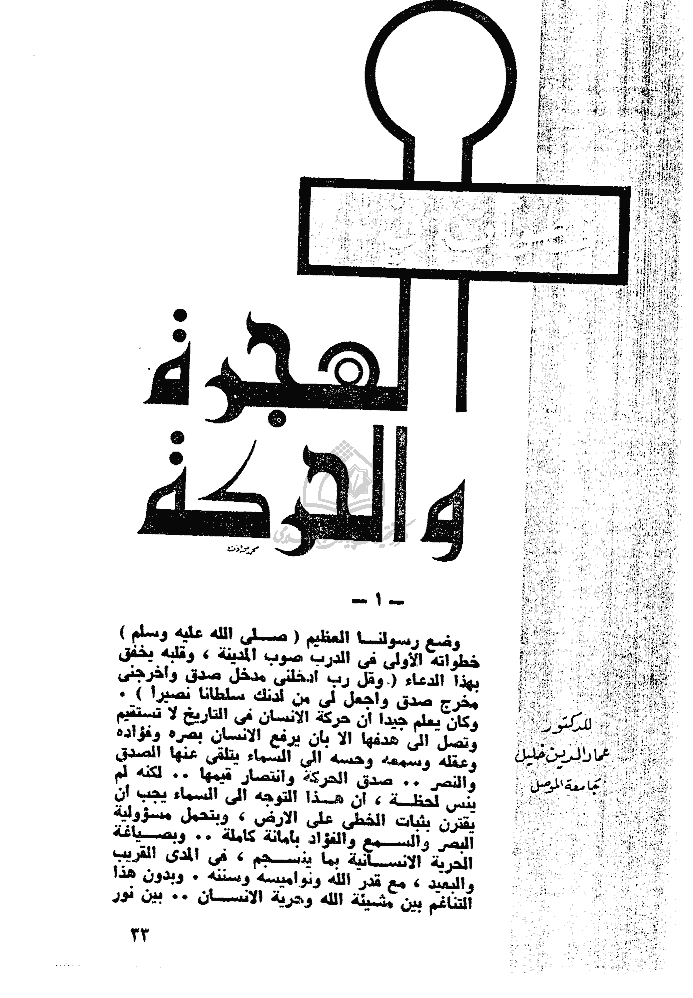 الهجرة
والحركة
ـ ١ ـ
وضع رسولنـــا العظيم ( صـــلى الله عليه وسلم )
خطواته الأولى فى الدرب صوب المدينة ، وقلبه يخفق
بهذا الدعاء ( وقل رب ادخلنى مدخل صدق واخرجنى
مخرج صدق واجعل لى من لدنك سلطانا نصيرا ) ٠
وكان يعلم جيدا أن حركة الانسان فى التاريخ لا تستقيم
وتصل الى هدفها الا بان يرفع الانسان بصره وفؤاده
وعقله وسمعه وحسه الى السماء يتلقى عنها الصدق
والنصر ٠٠ صدق الحركة وانتصار قيمها ٠٠ لكنه لم
ينس لحظـــة ، أن هـــذا التوجه الى السماء يجب ان
يقترن بثبات الخطى على الارض ، وبتحمل مسؤولية
البصر والســـمع والفؤاد بامانة كاملة ٠٠ وبصـــياغة
الحرية الانســـانية بما ينســـجم ، فى المدى القريب
والبعيد ، مع قدر الله ونواميسه وسننه ٠ وبدون هذا
التناغم بين مشيئة الله وحرية الانســـان ٠٠ بين نور
للدكتور
عماد الدين خليل
جامعة الموصل
٣٣